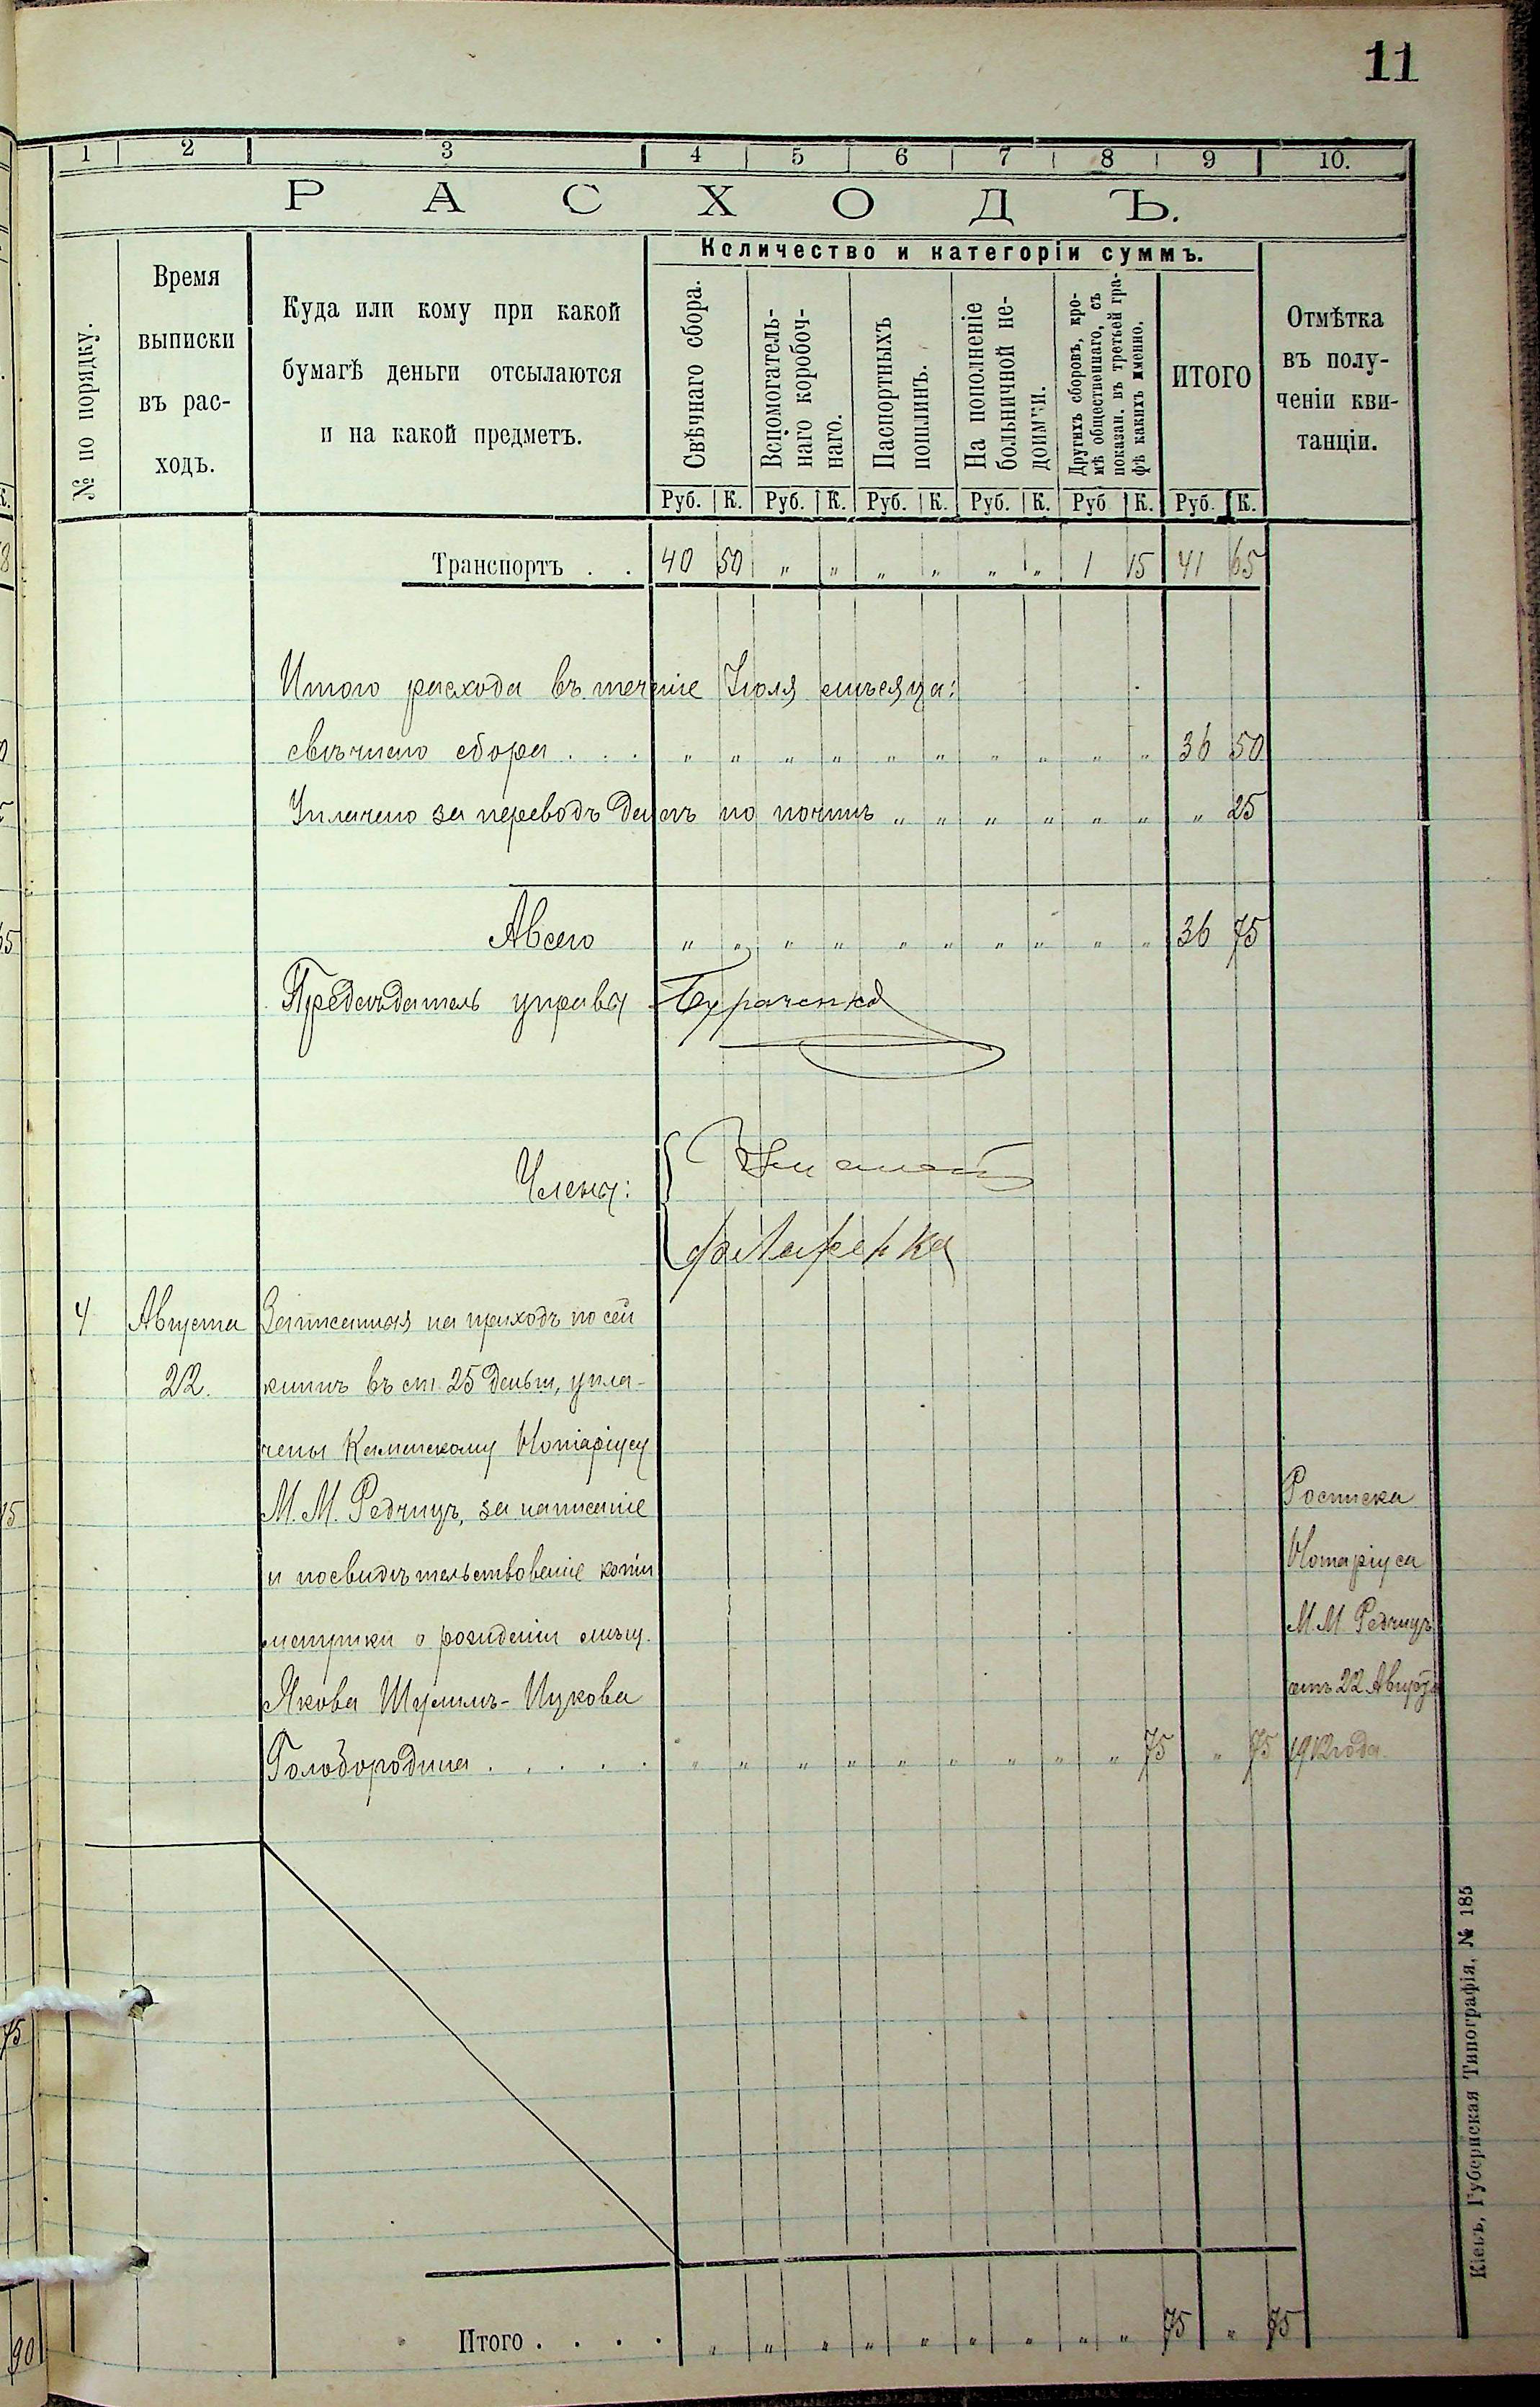 11
1 2 3 4 5 6 7 8 9 10.
РАСХОДЪ.
№ по порядку.
Время
выписки
въ рас-
ходъ.
Куда или кому при какой
бумагѣ деньги отсылаются
и на какой предметъ.
Количество и категоріи суммъ.
Свѣчнаго сбора.
Вспомогатель-
наго коробоч-
наго.
Паспортныхъ
пошлинъ.
На пополненіе
больничной не-
доимки.
Другихъ сборовъ, кро-
мѣ общественнаго, съ
показан. въ третьей гра-
фѣ какихъ именно.
ИТОГО
Отмѣтка
въ полу-
ченіи кви-
танціи.
Руб. К. Руб. К. Руб. К. Руб. К. Руб К. Руб. К.
Транспортъ . . 40 50 „ „ „ „ „ „ 1 15 41 65
Итого расхода въ теченіе Іюля мѣсяца:
свѣчного сбора . . . „ „ „ „ „ „ „ „ „ „ 36 50
Уплачено за переводъ денегъ по почтѣ „ „ „ „ „ „ „ 25
А всего „ „ „ „ „ „ „ „ „ „ 36 75
Предсѣдатель управы Бураченко
Члены:
4 Августа 22. Записанная на приходъ по сей
книгѣ въ ст. 25 деньги, упла-
чены Каменскому Нотаріусу
М. М. Редчицъ, за написаніе
и посвидѣтельствованіе копіи
метрики о рожденіи мѣщ.
Якова Шулимъ-Ицкова
Голобородина . . . . . „ „ „ „ „ „ „ „ „ 75 „ 75
Росписка
Нотаріуса
М. М. Редчицъ
отъ 22 Августа
1912 года
Итого . . . . „ „ „ „ „ „ „ „ „ 75 „ 75
Кіевъ, Губернская Типографія, № 185